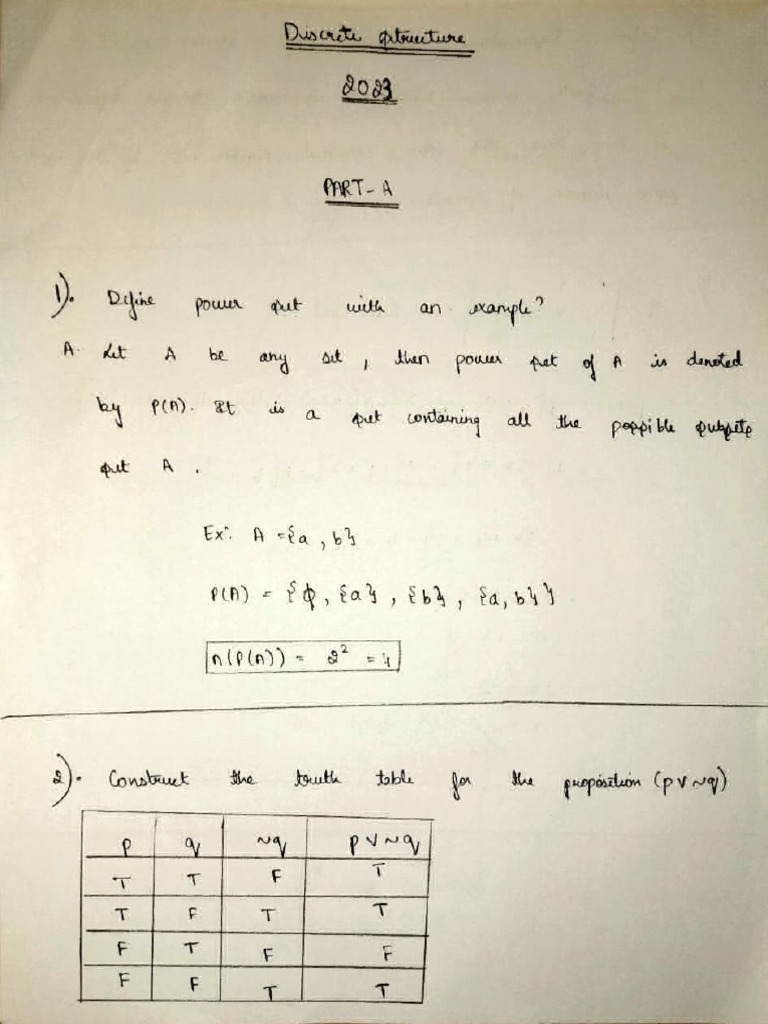 Discrete structure
2023
PART-A
1). Define power set with an example?
A. Let A be any set, then power set of A is denoted
by P(A). It is a set containing all the possible subsets
set A.
Ex: A = {a, b}
P(A) = {ϕ, {a}, {b}, {a, b}}
n(P(A)) = 2² = 4
2). Construct the truth table for the proposition (p ∨ ~q)
p q ~q p ∨ ~q
T T F T
T F T T
F T F F
F F T T